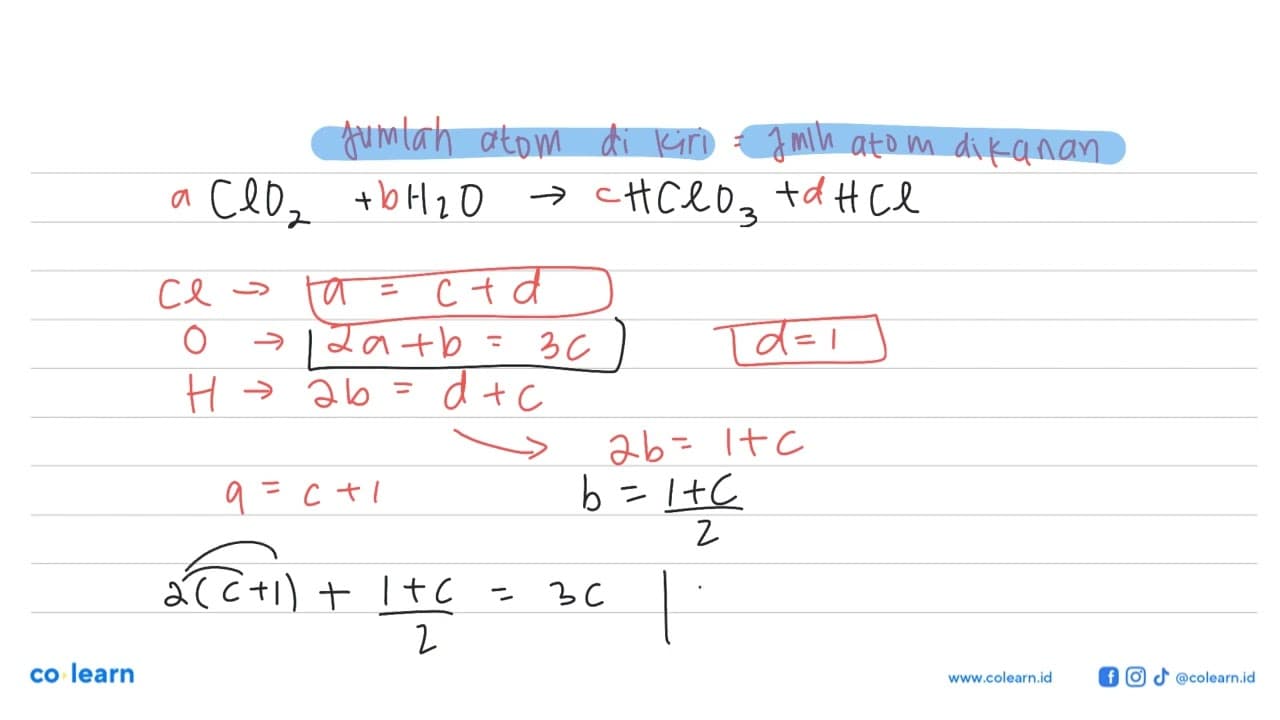 Jumlah atom di kiri = Jmlh atom dikanan
a ClO₂ + b H₂O → c HClO₃ + d HCl
Cl → a = c + d
O → 2a + b = 3c d = 1
H → 2b = d + c
→ 2b = 1 + c
a = c + 1 b = (1 + c)/2
2(c + 1) + (1 + c)/2 = 3c |
co learn www.colearn.id @colearn.id